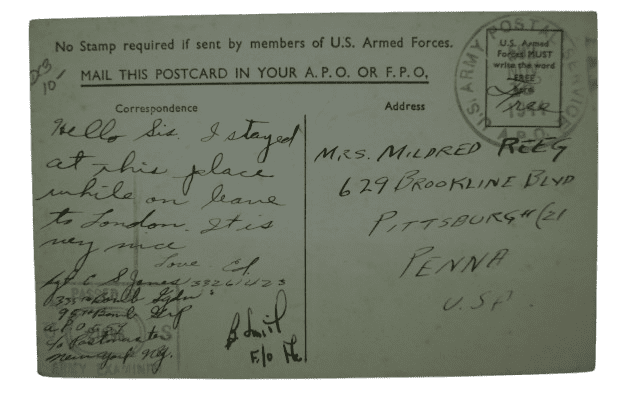 No Stamp required if sent by members of U.S. Armed Forces.
MAIL THIS POSTCARD IN YOUR A.P.O. OR F.P.O.
U.S. ARMY POSTAL SERVICE
A.P.O.
U.S. Armed
Forces MUST
write the word
FREE
Free
Correspondence
Hello Sis. I stayed
at this place
while on leave
to London. It is
very nice
Love
Sgt C S Jones
335th Bomb Sqdn
95th Bomb Grp
A.P.O.
c/o Postmaster
New York N.Y.
PASSED
ARMY EXAMINER
Address
MRS. MILDRED REEG
629 BROOKLINE BLVD
PITTSBURGH (21
PENNA
USA